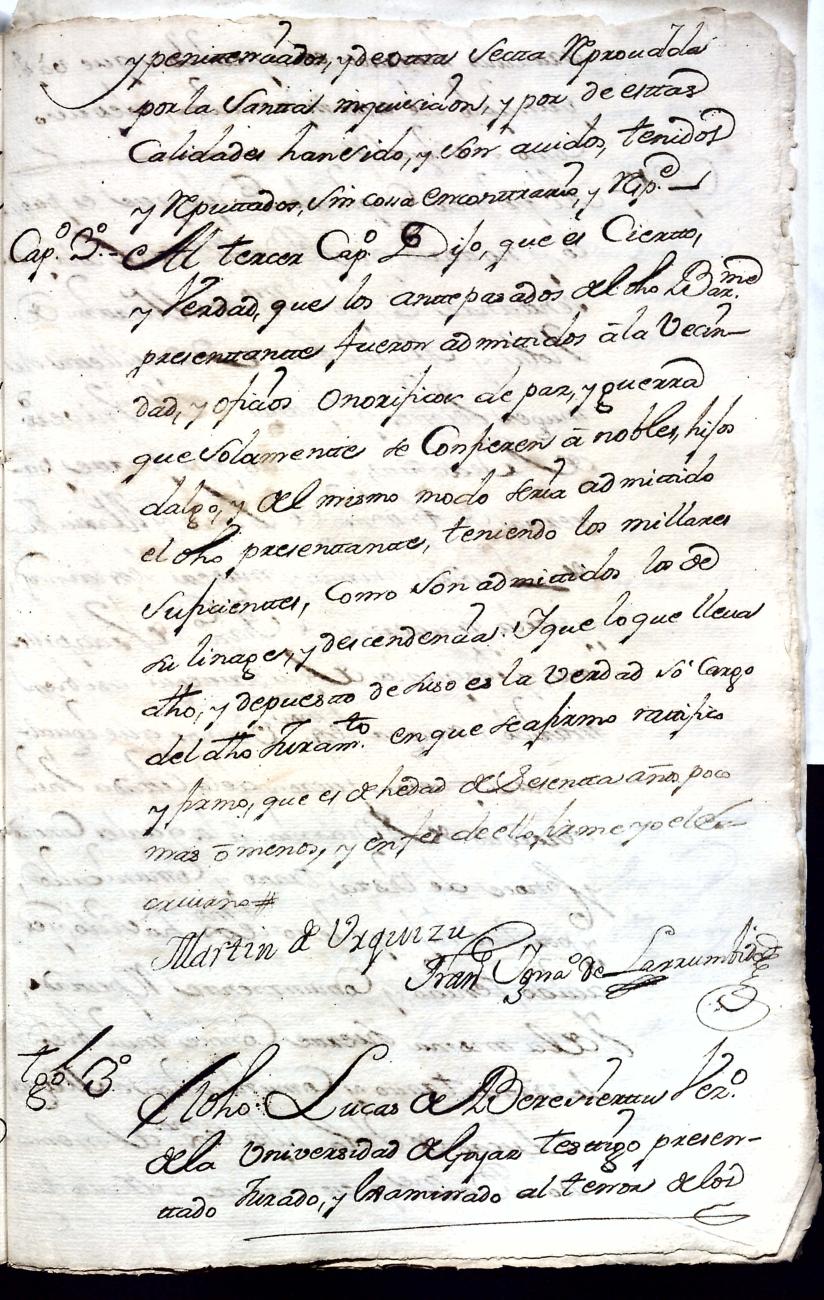 y penitenciados, y de otra secta Reprouada
por la Santta inquisicion, y por de esttas
Calidades han sido, y son auidos, tenidos
y Reputtados, sin cosa en conttrario, y Rp.e
Cap.o 3.o Al tercer Cap.o Dijo, que es Ciertto,
y Verdad, que los anttepasados del dho Bar.me
presenttantte fueron admittidos â la Vecin-
dad, y oficios onorificos de paz, y guerra
que solamentte se Confieren â nobles, hijos
dalgo, y del mismo modo seria admittido
el dho presenttantte, teniendo los millares
suficienttes, Como son admittidos los de
su linage, y descendencia. Y que lo que lleua
dho, y depuestto de suso es la Verdad só Cargo
del dho Juram.to en que se afirmo rattifico
y firmo, que es de hedad de Sesentta años poco
mas ô menos, y en fee de ello firme yo el es-
criuano#
Martin de Vrquizu
Fran.co Ygna.o de Larrumbide
tgo 3.o El dho Lucas de Beresierttu Vez.o
de la Universidad de Goyaz testtigo presen-
ttado Jurado, y Examinado al tenor de los